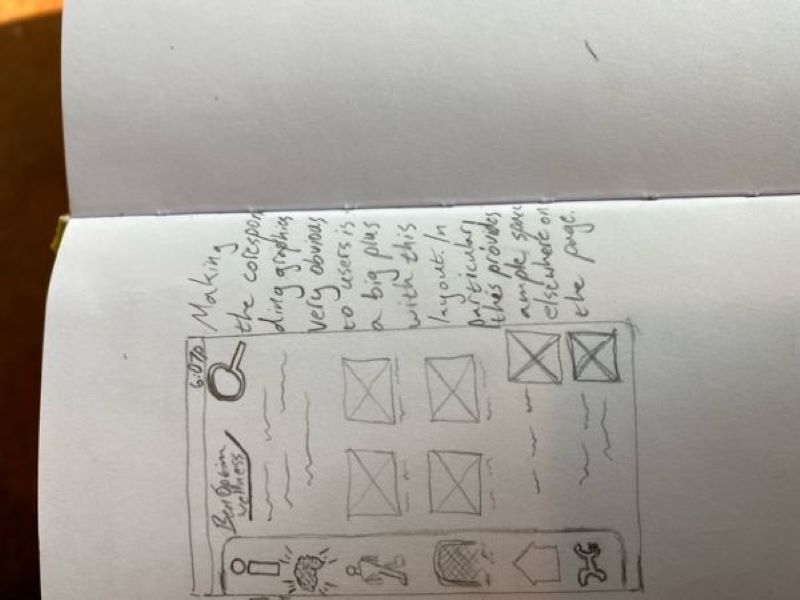 6:07p
BenOptim
wellness
Making
the corespon
ding graphics
very obvious
to users is
a big plus
with this
layout. In
particular,
this provides
ample space
elsewhere on
the page.